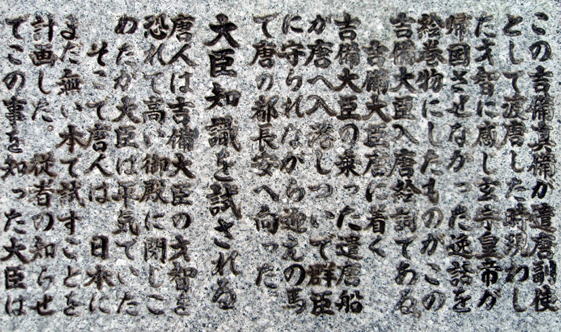 この吉備真備が遣唐副使
として渡唐した時現わし
た才智に感じ玄宗皇帝が
帰国させなかった逸話を
絵巻物にしたものがこの
吉備大臣入唐絵詞である
吉備大臣唐に着く
吉備大臣の乗った遣唐船
が唐へ入港しついで群臣
に守られながら迎えの馬
で唐の都長安へ向った
大臣知識を試される
唐人は吉備大臣の才智を
恐れて高い御殿に閉じこ
めたが大臣は平気でいた
そこで唐人は 日本に
まだ無い本で試すことを
計画した。従者の知らせ
でこの事を知った大臣は